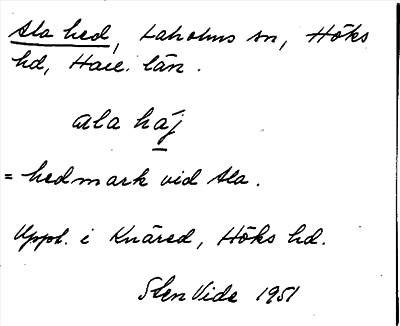 Ala hed, Laholms sn, Höks
hd, Hall. län.
ala hȧj
= hedmark vid Ala.
Uppt. i Knäred, Höks hd.
Sten Vide 1951